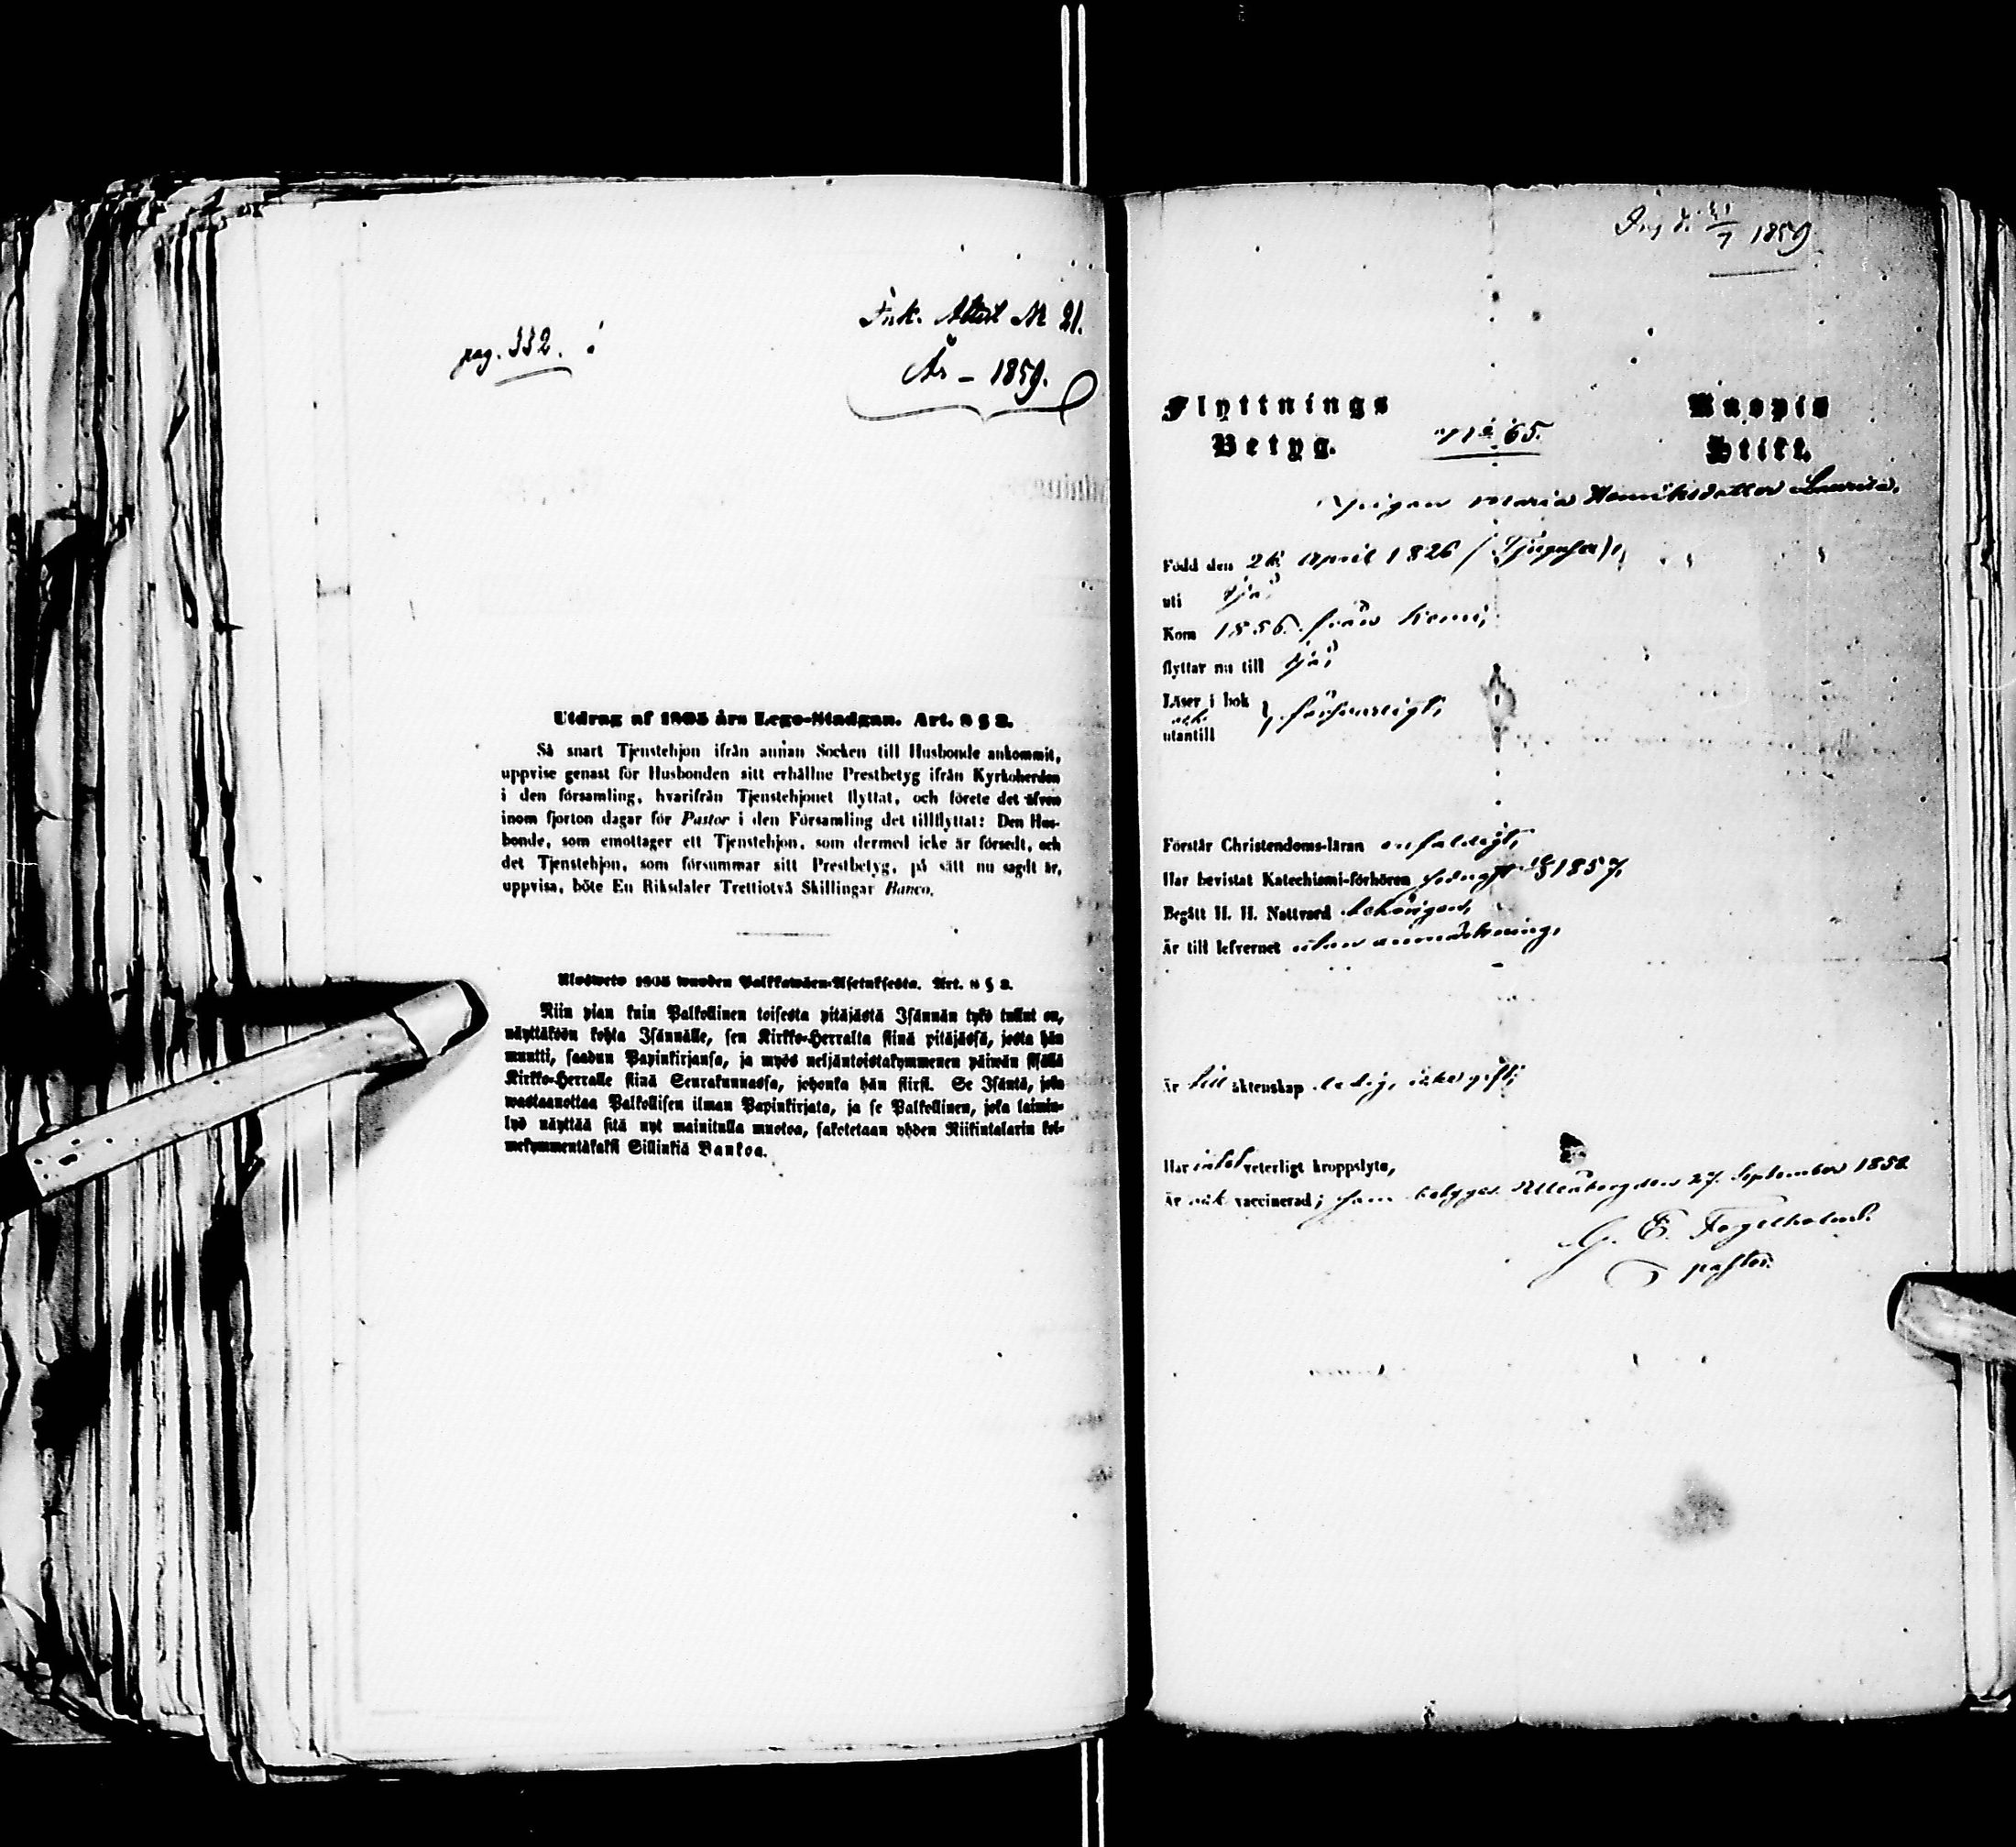 pag. 332.
Ink. Attest № 21.
År – 1859.
Utdrag af 1805 års Lego-Stadgan. Art. 8 § 2.
Så snart Tjenstehjon ifrån annan Socken till Husbonde ankommit,
uppvise genast för Husbonden sitt erhållne Prestbetyg ifrån Kyrkoherden
i den församling, hvarifrån Tjenstehjonet flyttat, och förete det äfven
inom fjorton dagar för Pastor i den Församling det tillflyttat: Den Hus-
bonde, som emottager ett Tjenstehjon, som dermed icke är försedt, och
det Tjenstehjon, som försummar sitt Prestbetyg, på sätt nu sagdt är,
uppvisa, böte En Riksdaler Trettiotvå Skillingar Banco.
Ulosweto 1805 wuoden Palkkawäen-Asetuksesta. Art. 8 § 2.
Niin pian kuin Palkollinen toisesta pitäjästä Isännän tykö tullut on,
näyttäköön kohta Isännälle, sen Kirkko-Herralta siinä pitäjässä, josta hän
muutti, saadun Papinkirjansa, ja myös neljäntoistakymmenen päiwän sisällä
Kirkko-Herralle siinä Seurakunnassa, johonka hän siirsi. Se Isäntä, joka
wastaanottaa Palkollisen ilman Papinkirjata, ja se Palkollinen, joka laimin-
lyö näyttää sitä nyt mainitulla muotoa, sakotetaan yhden Riikintalarin kol-
mekymmentäkaksi Sillinkiä Bankoa.
1859
Flyttnings Kuopio
Betyg. № 65. Stift.
Pigan Maria Henriksdotter Laurila,
Född den April 1826
uti
Kom 1856 från Kemi,
flyttar nu till
Läser i bok
och försvarligt,
utantill
Förstår Christendoms-läran enfaldigt,
Har bevistat Katechismi-förhören 1857,
Begått H. H. Nattvard behörigen,
Är till lefvernet utan anmärkning,
Är till äktenskap ledig, icke gift;
Har intet veterligt kroppslyte,
Är ock vaccinerad; som betygas. Uleåborg den 27. September 1858
G. E. Fogelholm.
pastor.